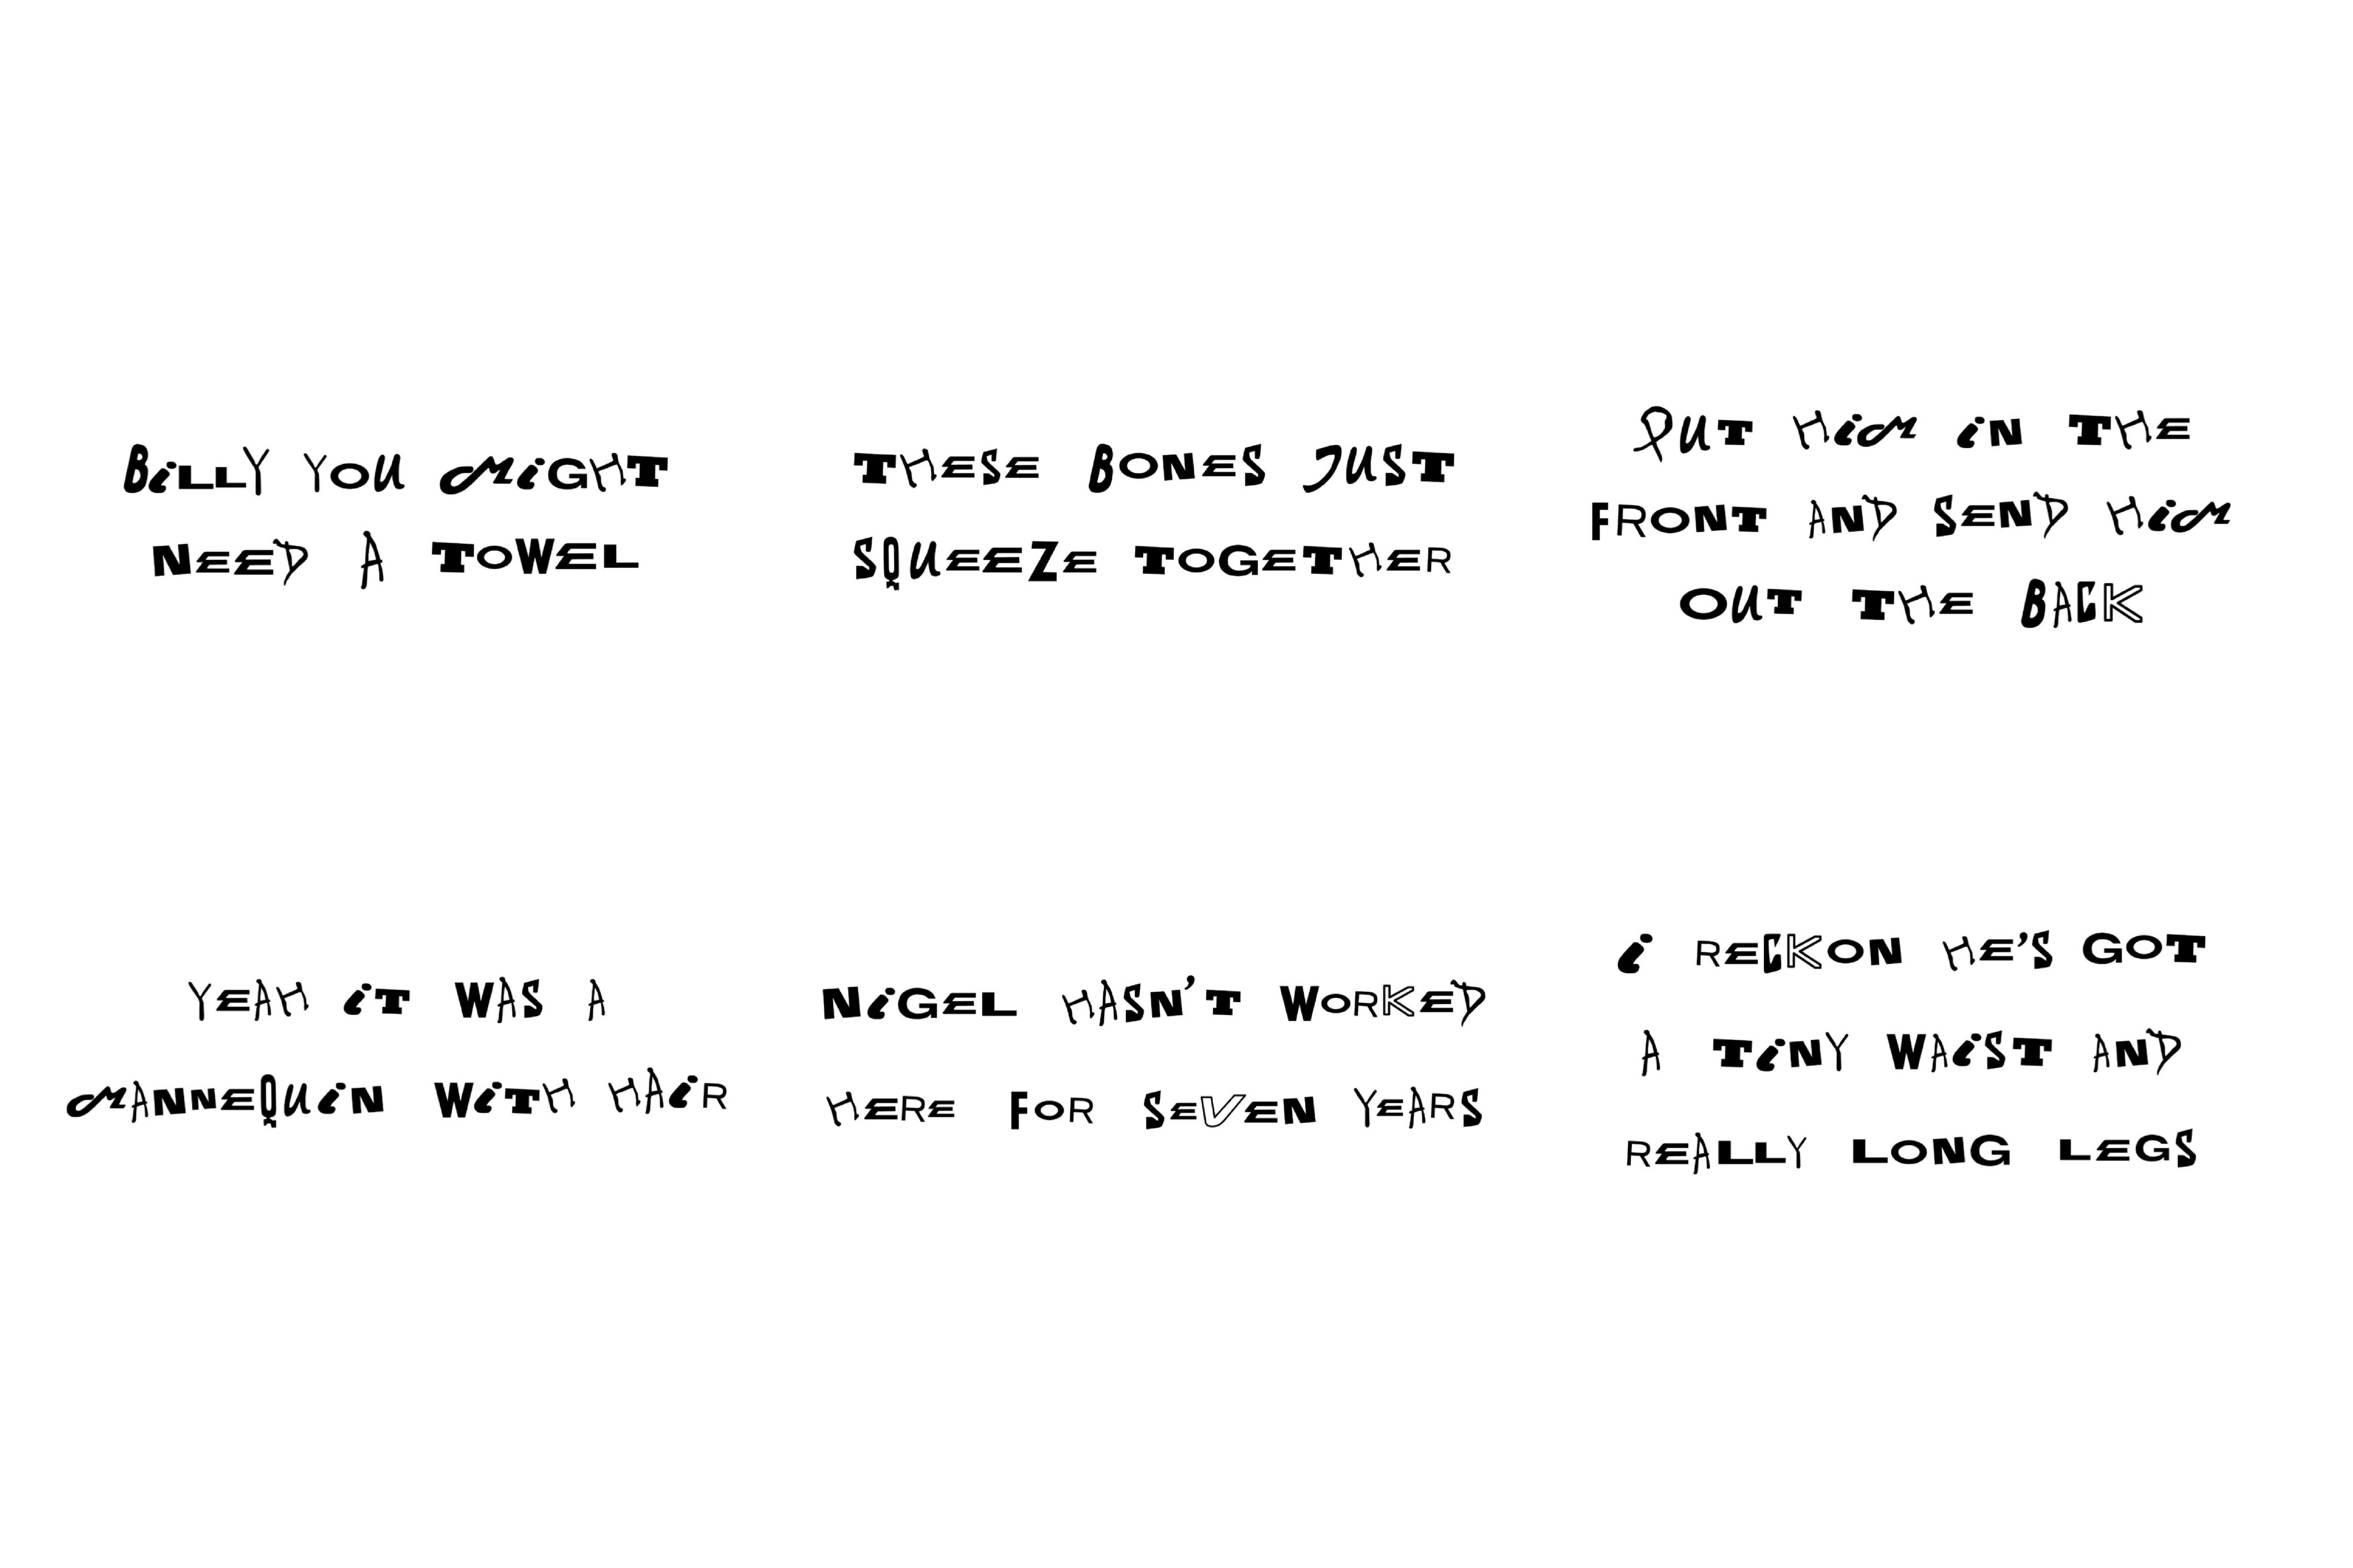 BiLLY YOU MiGHT
NEED A TOWEL
THESE BONES JUST
SQUEEZE TOGETHER
PUT HiM iN THE
FRONT AND SEND HiM
OUT THE BACK
YEAH iT WAS A
MANNEQUiN WiTH HAiR
NiGEL HASN'T WORKED
HERE FOR SEVEN YEARS
i RECKON HE'S GOT
A TiNY WAiST AND
REALLY LONG LEGS